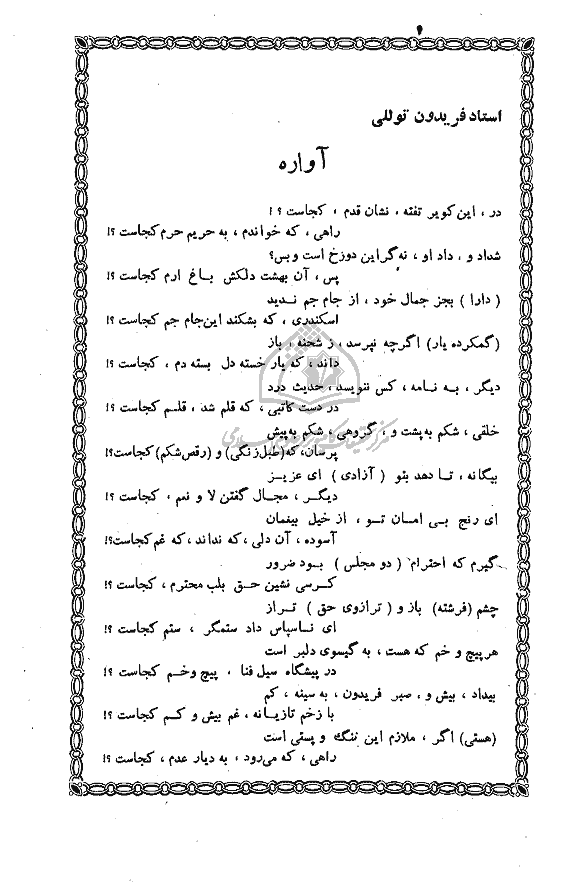 استاد فریدون توللی
آواره
در ، این کویر تفته ، نشان قدم ، کجاست ؟ !
راهی ، که خواندم ، به حریم حرم کجاست ؟!
شداد و ، داد او ، نه گر این دوزخ است و بس؟
پس ، آن بهشت دلکش باغ ارم کجاست ؟!
( دارا ) بجز جمال خود ، از جام جم ندید
اسکندری ، که بشکند این‌جام جم کجاست ؟!
(گمکرده یار) اگرچه نپرسد ، ز شحنه ، باز
داند ، که یار خسته دل بسته دم ، کجاست ؟!
دیگر ، به نامه ، کس ننویسد ، حدیث درد
در دست کاتبی ، که قلم شد ، قلم کجاست ؟!
خلقی ، شکم به‌پشت و ، گروهی ، شکم به‌پیش
پرسان، که (طبل‌زنگی) و (رقص‌شکم) کجاست؟!
بیگانه ، تا دهد بتو ( آزادی ) ای عزیز
دیگر ، مجال گفتن لا و نعم ، کجاست ؟!
ای رنج بی امان تو ، از خیل بیغمان
آسوده ، آن دلی ، که نداند ، که غم کجاست؟!
گیرم که احترام ( دو مجلس ) بود ضرور
کرسی نشین حق بلب محترم ، کجاست ؟!
چشم (فرشته) باز و ( ترازوی حق ) تراز
ای ناسپاس داد ستمگر ، ستم کجاست ؟!
هرپیچ و خم که هست ، به گیسوی دلبر است
در پیشگاه سیل فنا ، پیچ وخم کجاست ؟!
بیداد ، بیش و ، صبر فریدون ، به سینه ، کم
با زخم تازیانه ، غم بیش و کم کجاست ؟!
(هستی) اگر ، ملازم این ننگ و پستی است
راهی ، که می‌رود ، به دیار عدم ، کجاست ؟!